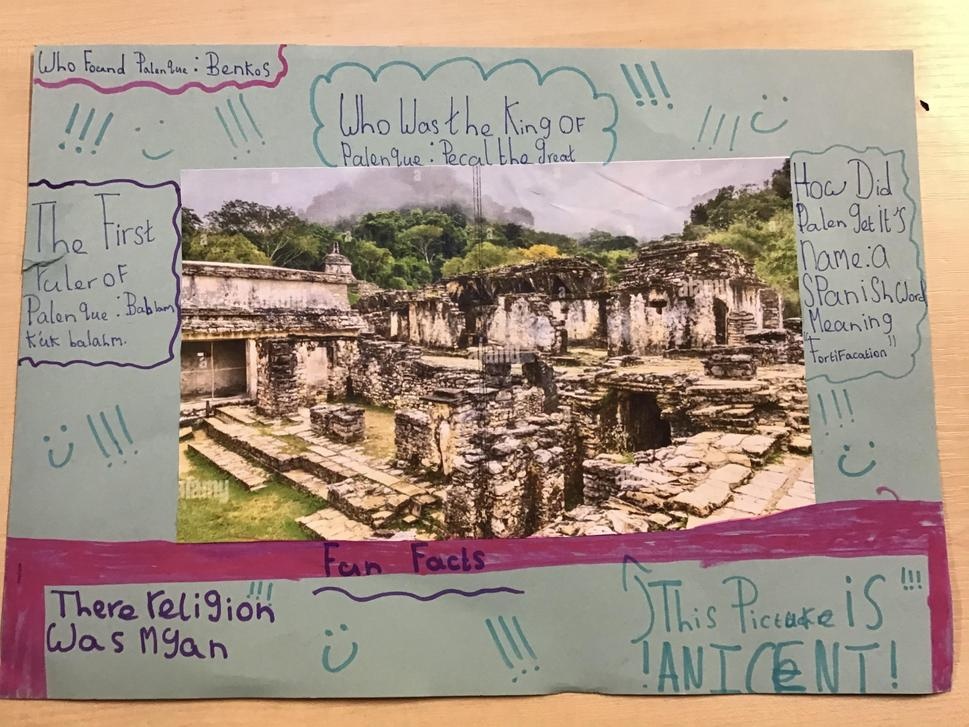 Who Found Palenque: Benkos
!!!
!!!
Who Was the King OF
Palenque: Pecal the great
!!!
!!!
The First
ruler of
Palenque: Bablam
k'uk balahm.
How Did
Palen get it's
Name: a
SPanish Word
Meaning
"FortiFacation"
a
alamy
a
alamy
alamy
!!!
!!!
Fun Facts
There religion
Was Myan
!!!
!!!
This Picture is
!!!
!ANICENT!